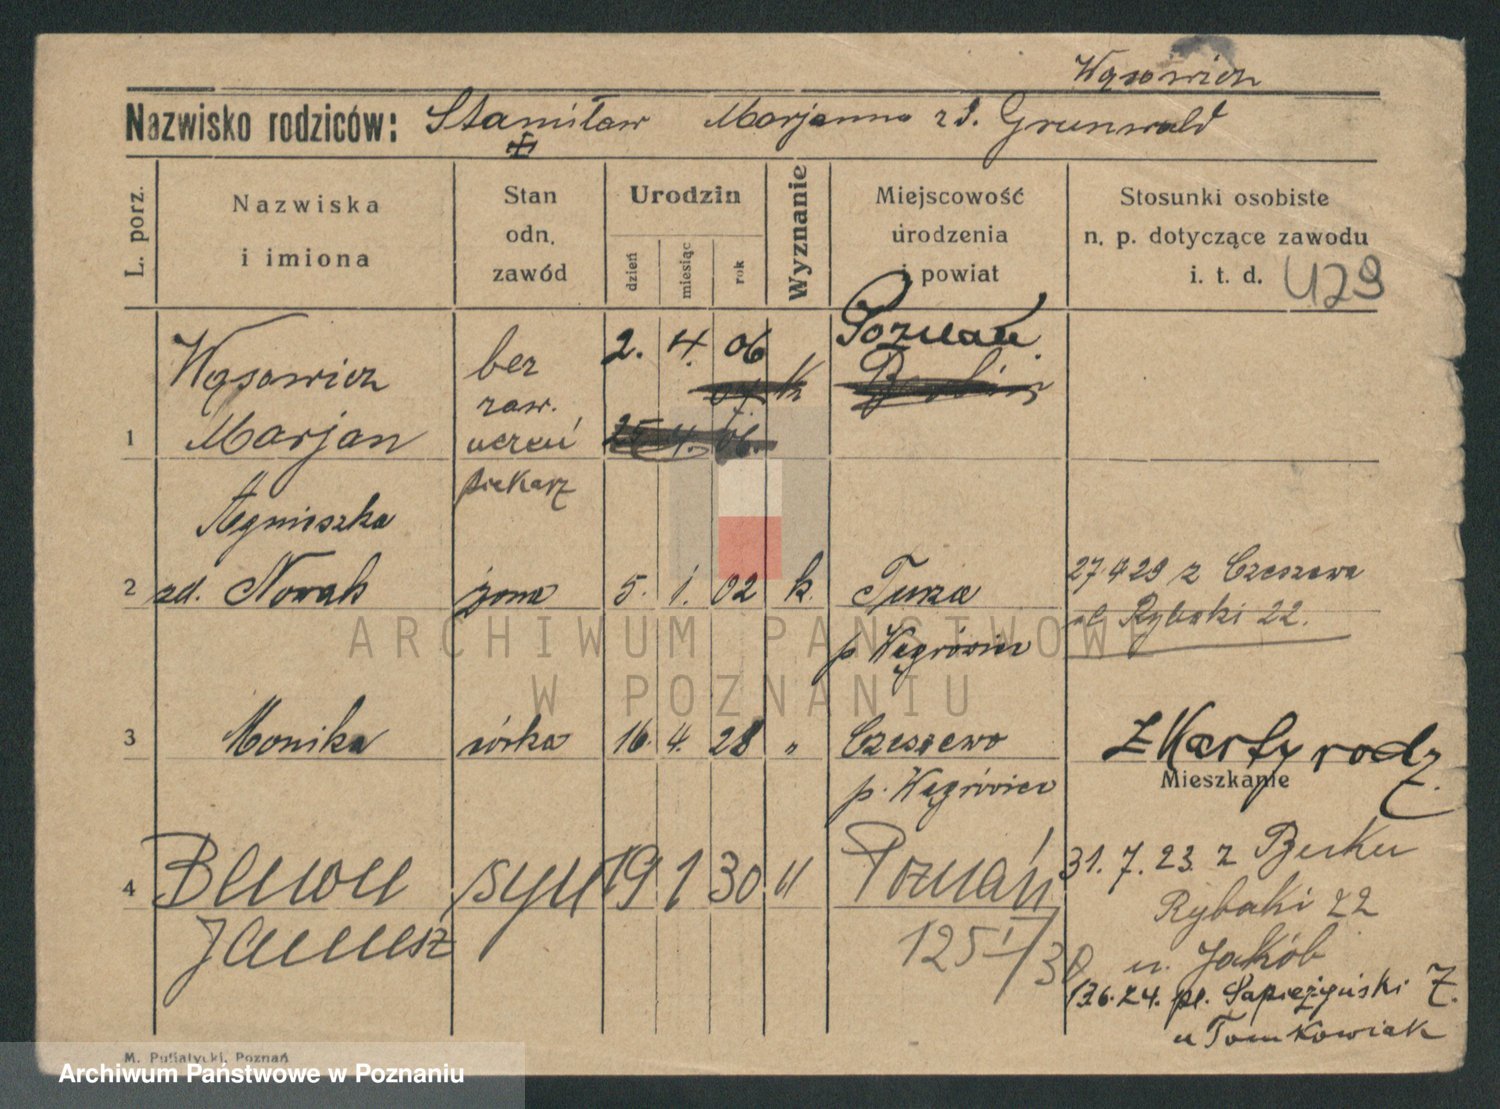 Wąsowicz
Nazwisko rodziców: Stanisław Marjanna z d. Grunwald
L. porz.
Nazwiska
i imiona
Stan
odn.
zawód
Urodzin
dzień
miesiąc
rok
Wyznanie
Miejscowość
urodzenia
i powiat
Stosunki osobiste
n. p. dotyczące zawodu
i. t. d. U29
1
Wąsowicz
Marjan
bez
zaw.
uczeń
piekarz
2. 4. 06
k
25 4. 06.
Poznań
Berlin
2
Agnieszka
zd. Nowak
żona
5. 1. 02 k.
Turza
p Wągrówiec
27 4 29 z Czeszewa
ul Rybaki 22.
3 Monika córka 16. 4. 28 "
Czeszewo
p. Wągrówiec
z Karty rodz.
Mieszkanie
4
Benon
Janusz
syn 19 1 30 "
Poznań
125 I/30
31. 7. 23 z
Rybaki 22
u. Jakób
13.6.24. pl. Sapieżyński 7.
u Tomkowiak
M. Putiatycki, Poznań
ARCHIWUM PAŃSTWOWE
W POZNANIU
Archiwum Państwowe w Poznaniu